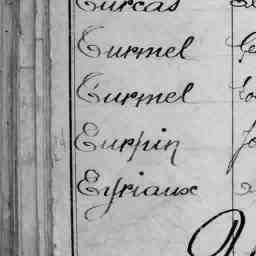 Turcas
Turmel
Turmel
Turpin
Tyriaux